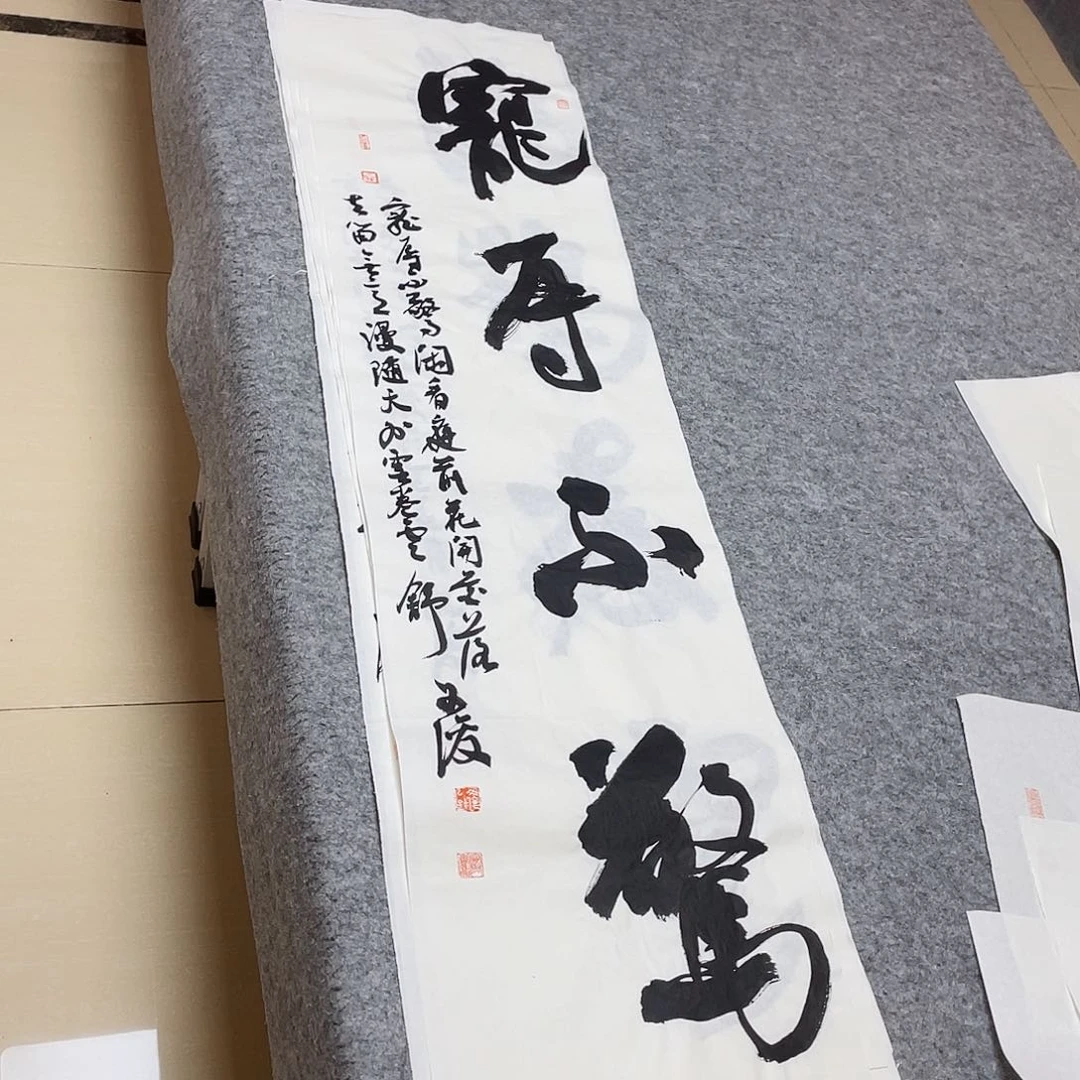 寵辱不驚
寵辱不驚閑看庭前花開花落
去留無意漫隨天外雲卷雲舒